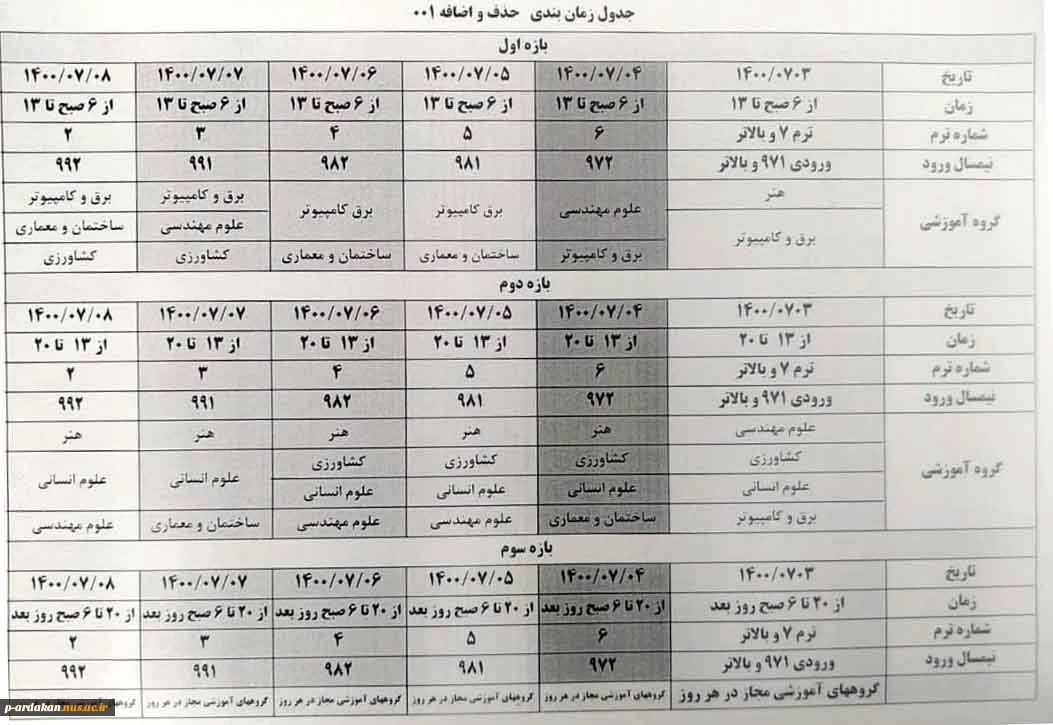 جدول زمان بندی حذف و اضافه ۰۰۱
بازه اول
تاریخ ۱۴۰۰/۰۷۰۳ ۱۴۰۰/۰۷/۰۴ ۱۴۰۰/۰۷/۰۵ ۱۴۰۰/۰۷/۰۶ ۱۴۰۰/۰۷/۰۷ ۱۴۰۰/۰۷/۰۸
زمان از ۶ صبح تا ۱۳ از ۶ صبح تا ۱۳ از ۶ صبح تا ۱۳ از ۶ صبح تا ۱۳ از ۶ صبح تا ۱۳ از ۶ صبح تا ۱۳
شماره ترم ترم ۷ و بالاتر ۶ ۵ ۴ ۳ ۲
نیمسال ورود ورودی ۹۷۱ و بالاتر ۹۷۲ ۹۸۱ ۹۸۲ ۹۹۱ ۹۹۲
گروه آموزشی
هنر علوم مهندسی برق کامپیوتر برق کامپیوتر برق و کامپیوتر برق و کامپیوتر
علوم مهندسی ساختمان و معماری
برق و کامپیوتر برق و کامپیوتر ساختمان و معماری ساختمان و معماری کشاورزی کشاورزی
بازه دوم
تاریخ ۱۴۰۰/۰۷۰۳ ۱۴۰۰/۰۷/۰۴ ۱۴۰۰/۰۷/۰۵ ۱۴۰۰/۰۷/۰۶ ۱۴۰۰/۰۷/۰۷ ۱۴۰۰/۰۷/۰۸
زمان از ۱۳ تا ۲۰ از ۱۳ تا ۲۰ از ۱۳ تا ۲۰ از ۱۳ تا ۲۰ از ۱۳ تا ۲۰ از ۱۳ تا ۲۰
شماره ترم ترم ۷ و بالاتر ۶ ۵ ۴ ۳ ۲
نیمسال ورود ورودی ۹۷۱ و بالاتر ۹۷۲ ۹۸۱ ۹۸۲ ۹۹۱ ۹۹۲
گروه آموزشی
علوم مهندسی هنر هنر هنر هنر هنر
کشاورزی کشاورزی کشاورزی کشاورزی علوم انسانی علوم انسانی
علوم انسانی علوم انسانی علوم انسانی علوم انسانی
برق و کامپیوتر ساختمان و معماری علوم مهندسی علوم مهندسی ساختمان و معماری علوم مهندسی
بازه سوم
تاریخ ۱۴۰۰/۰۷۰۳ ۱۴۰۰/۰۷/۰۴ ۱۴۰۰/۰۷/۰۵ ۱۴۰۰/۰۷/۰۶ ۱۴۰۰/۰۷/۰۷ ۱۴۰۰/۰۷/۰۸
زمان از ۲۰ تا ۶ صبح روز بعد از ۲۰ تا ۶ صبح روز بعد از ۲۰ تا ۶ صبح روز بعد از ۲۰ تا ۶ صبح روز بعد از ۲۰ تا ۶ صبح روز بعد از ۲۰ تا ۶ صبح روز بعد
شماره ترم ترم ۷ و بالاتر ۶ ۵ ۴ ۳ ۲
نیمسال ورود ورودی ۹۷۱ و بالاتر ۹۷۲ ۹۸۱ ۹۸۲ ۹۹۱ ۹۹۲
گروههای آموزشی مجاز در هر روز گروههای آموزشی مجاز در هر روز گروههای آموزشی مجاز در هر روز گروههای آموزشی مجاز در هر روز گروههای آموزشی مجاز در هر روز گروههای آموزشی مجاز در هر روز
p-ardakan.nus.ac.ir